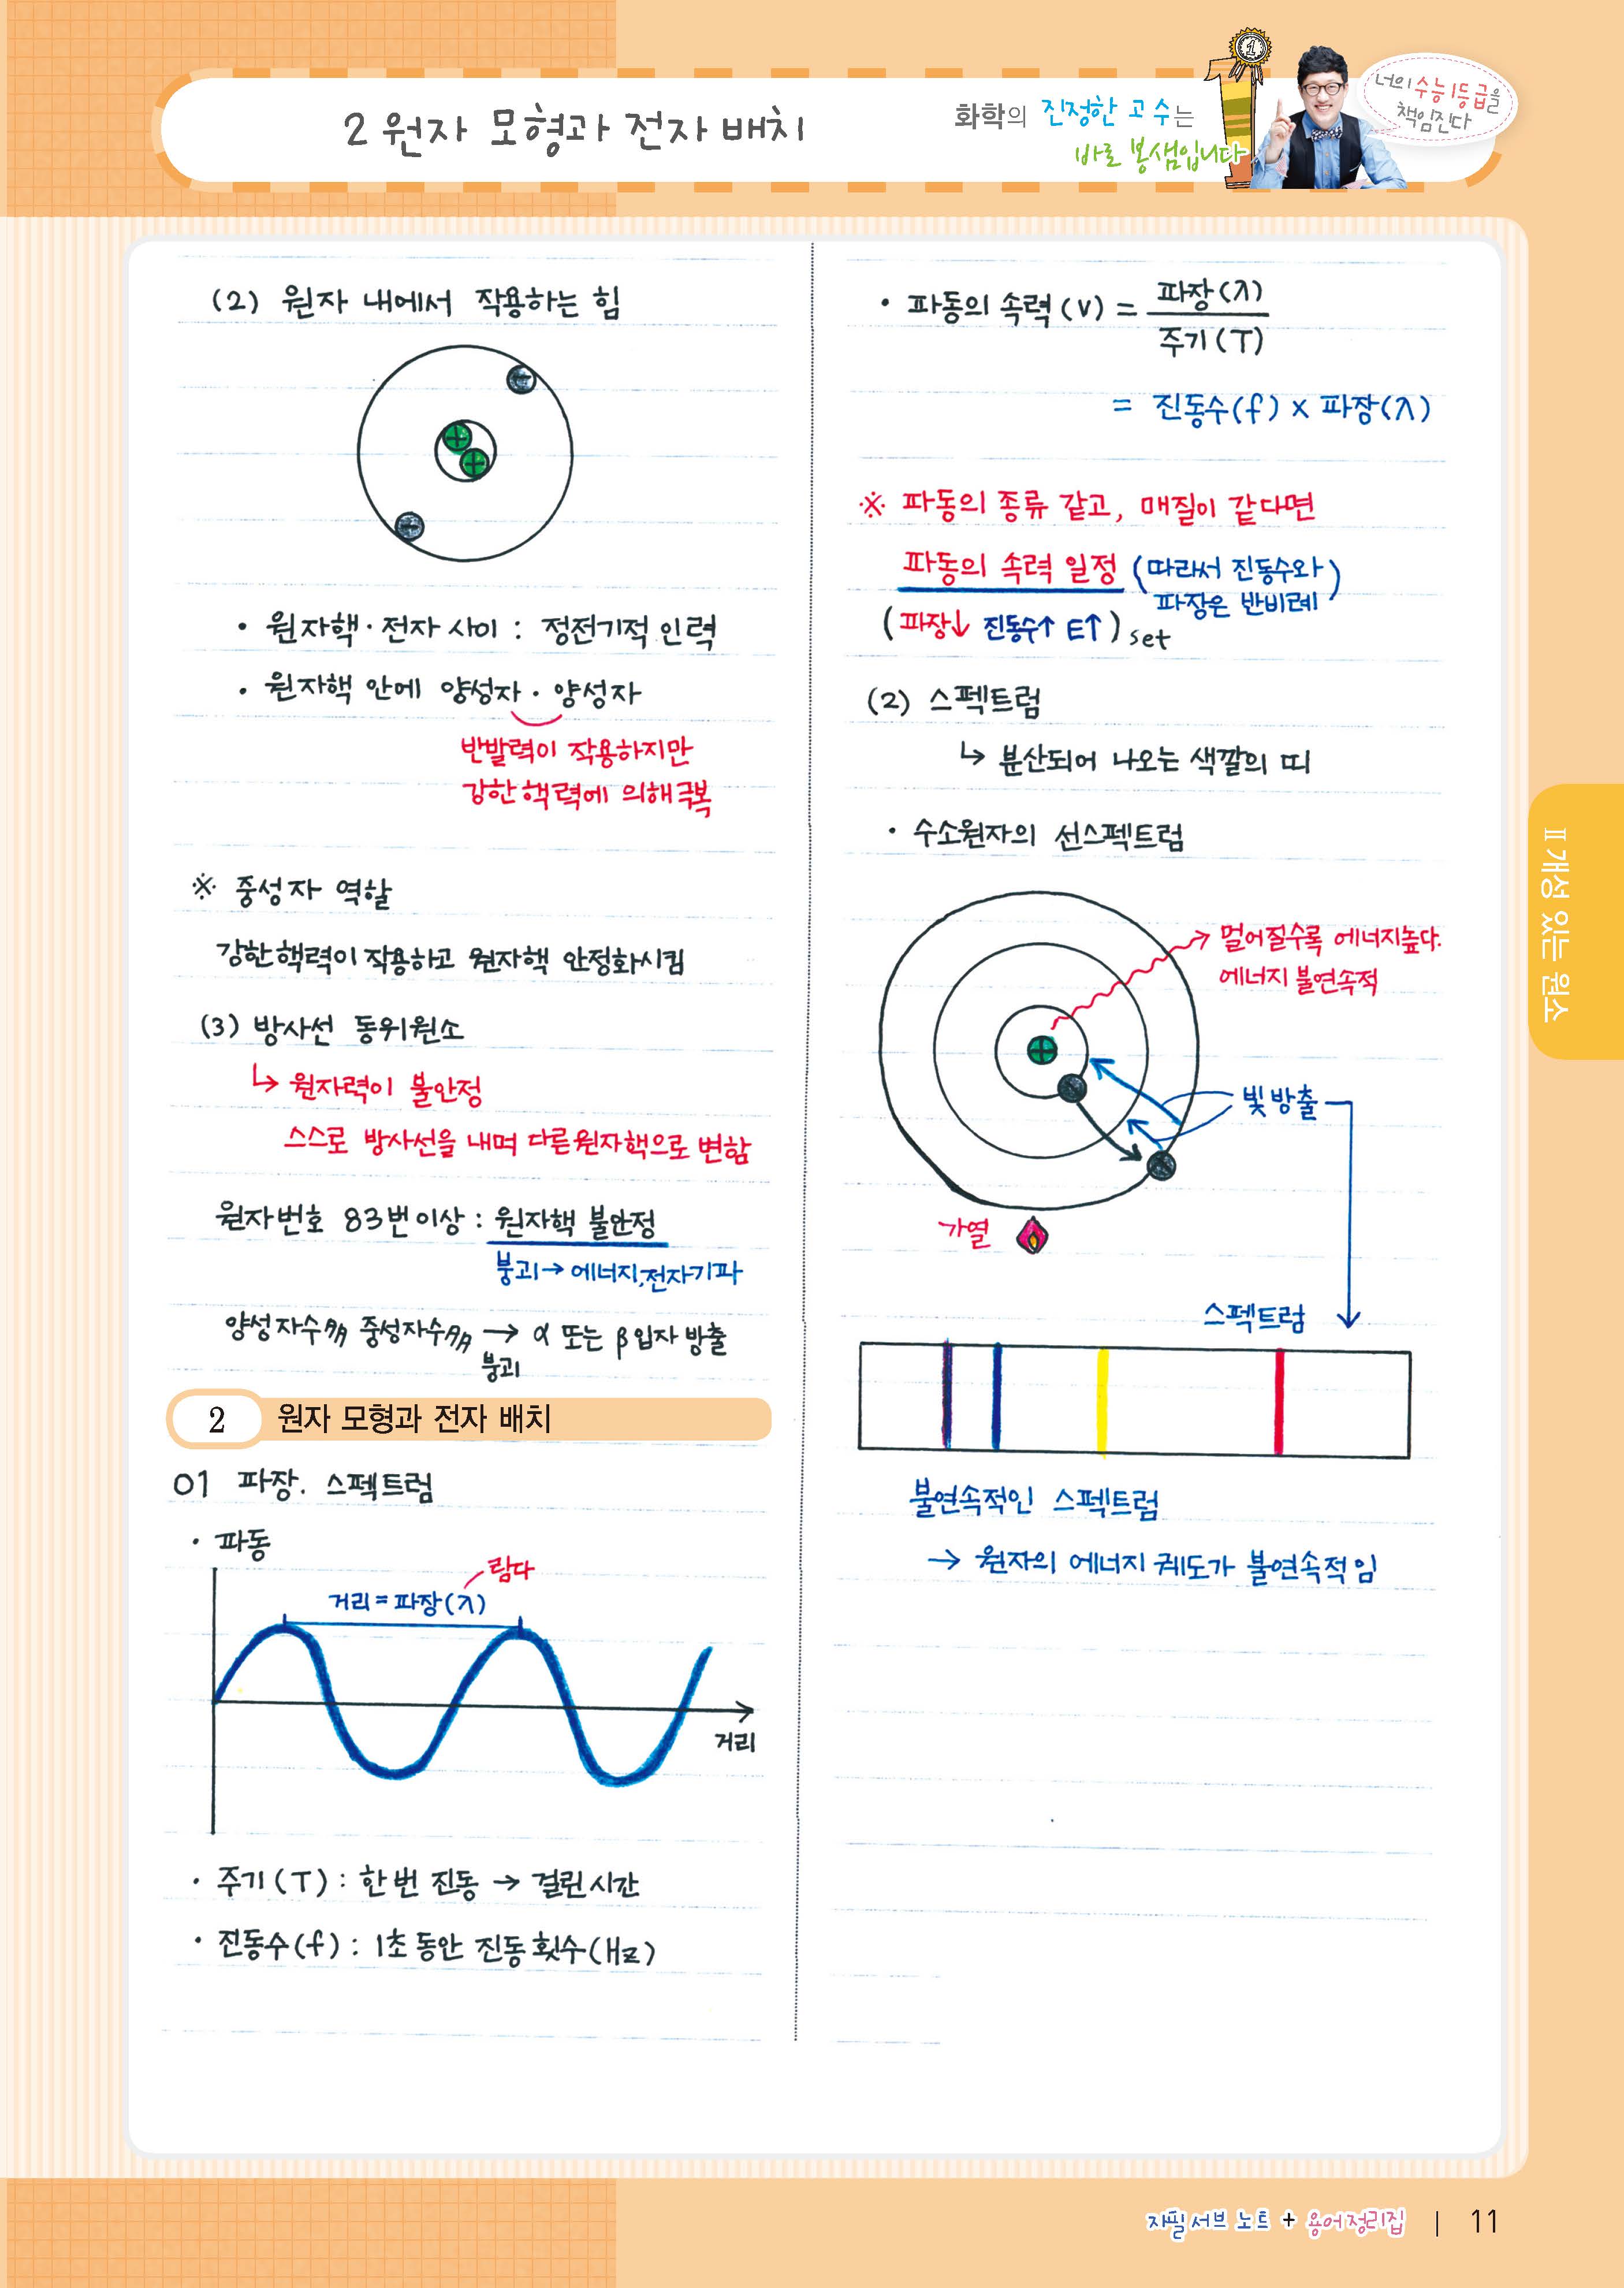 2 원자 모형과 전자 배치
화학의 진정한 고수는
바로 봉샘입니다
1
너의 수능 1등급을
책임진다
(2) 원자 내에서 작용하는 힘
+
+
−
−
• 원자핵·전자 사이 : 정전기적 인력
• 원자핵 안에 양성자·양성자
반발력이 작용하지만
강한 핵력에 의해 극복
※ 중성자 역할
강한핵력이 작용하고 원자핵 안정화시킴
(3) 방사선 동위원소
↳ 원자력이 불안정
스스로 방사선을 내며 다른원자핵으로 변함
원자번호 83번이상 : 원자핵 불안정
붕괴→에너지,전자기파
양성자수 중성자수 → α 또는 β입자 방출
붕괴
2 원자 모형과 전자 배치
01 파장. 스펙트럼
• 파동
람다
거리=파장(λ)
거리
• 주기(T) : 한번 진동 → 걸린시간
• 진동수(f) : 1초 동안 진동 횟수(Hz)
• 파동의 속력(v) = 파장(λ)
주기(T)
= 진동수(f) × 파장(λ)
※ 파동의 종류 같고, 매질이 같다면
파동의 속력 일정 (따라서 진동수와
파장은 반비례)
(파장↓ 진동수↑ E↑) set
(2) 스펙트럼
↳ 분산되어 나오는 색깔의 띠
• 수소원자의 선스펙트럼
멀어질수록 에너지높다.
에너지 불연속적
+
빛방출
가열
스펙트럼
불연속적인 스펙트럼
→ 원자의 에너지 궤도가 불연속적임
Ⅱ 개성 있는 원소
자필 서브 노트 + 용어정리집 | 11